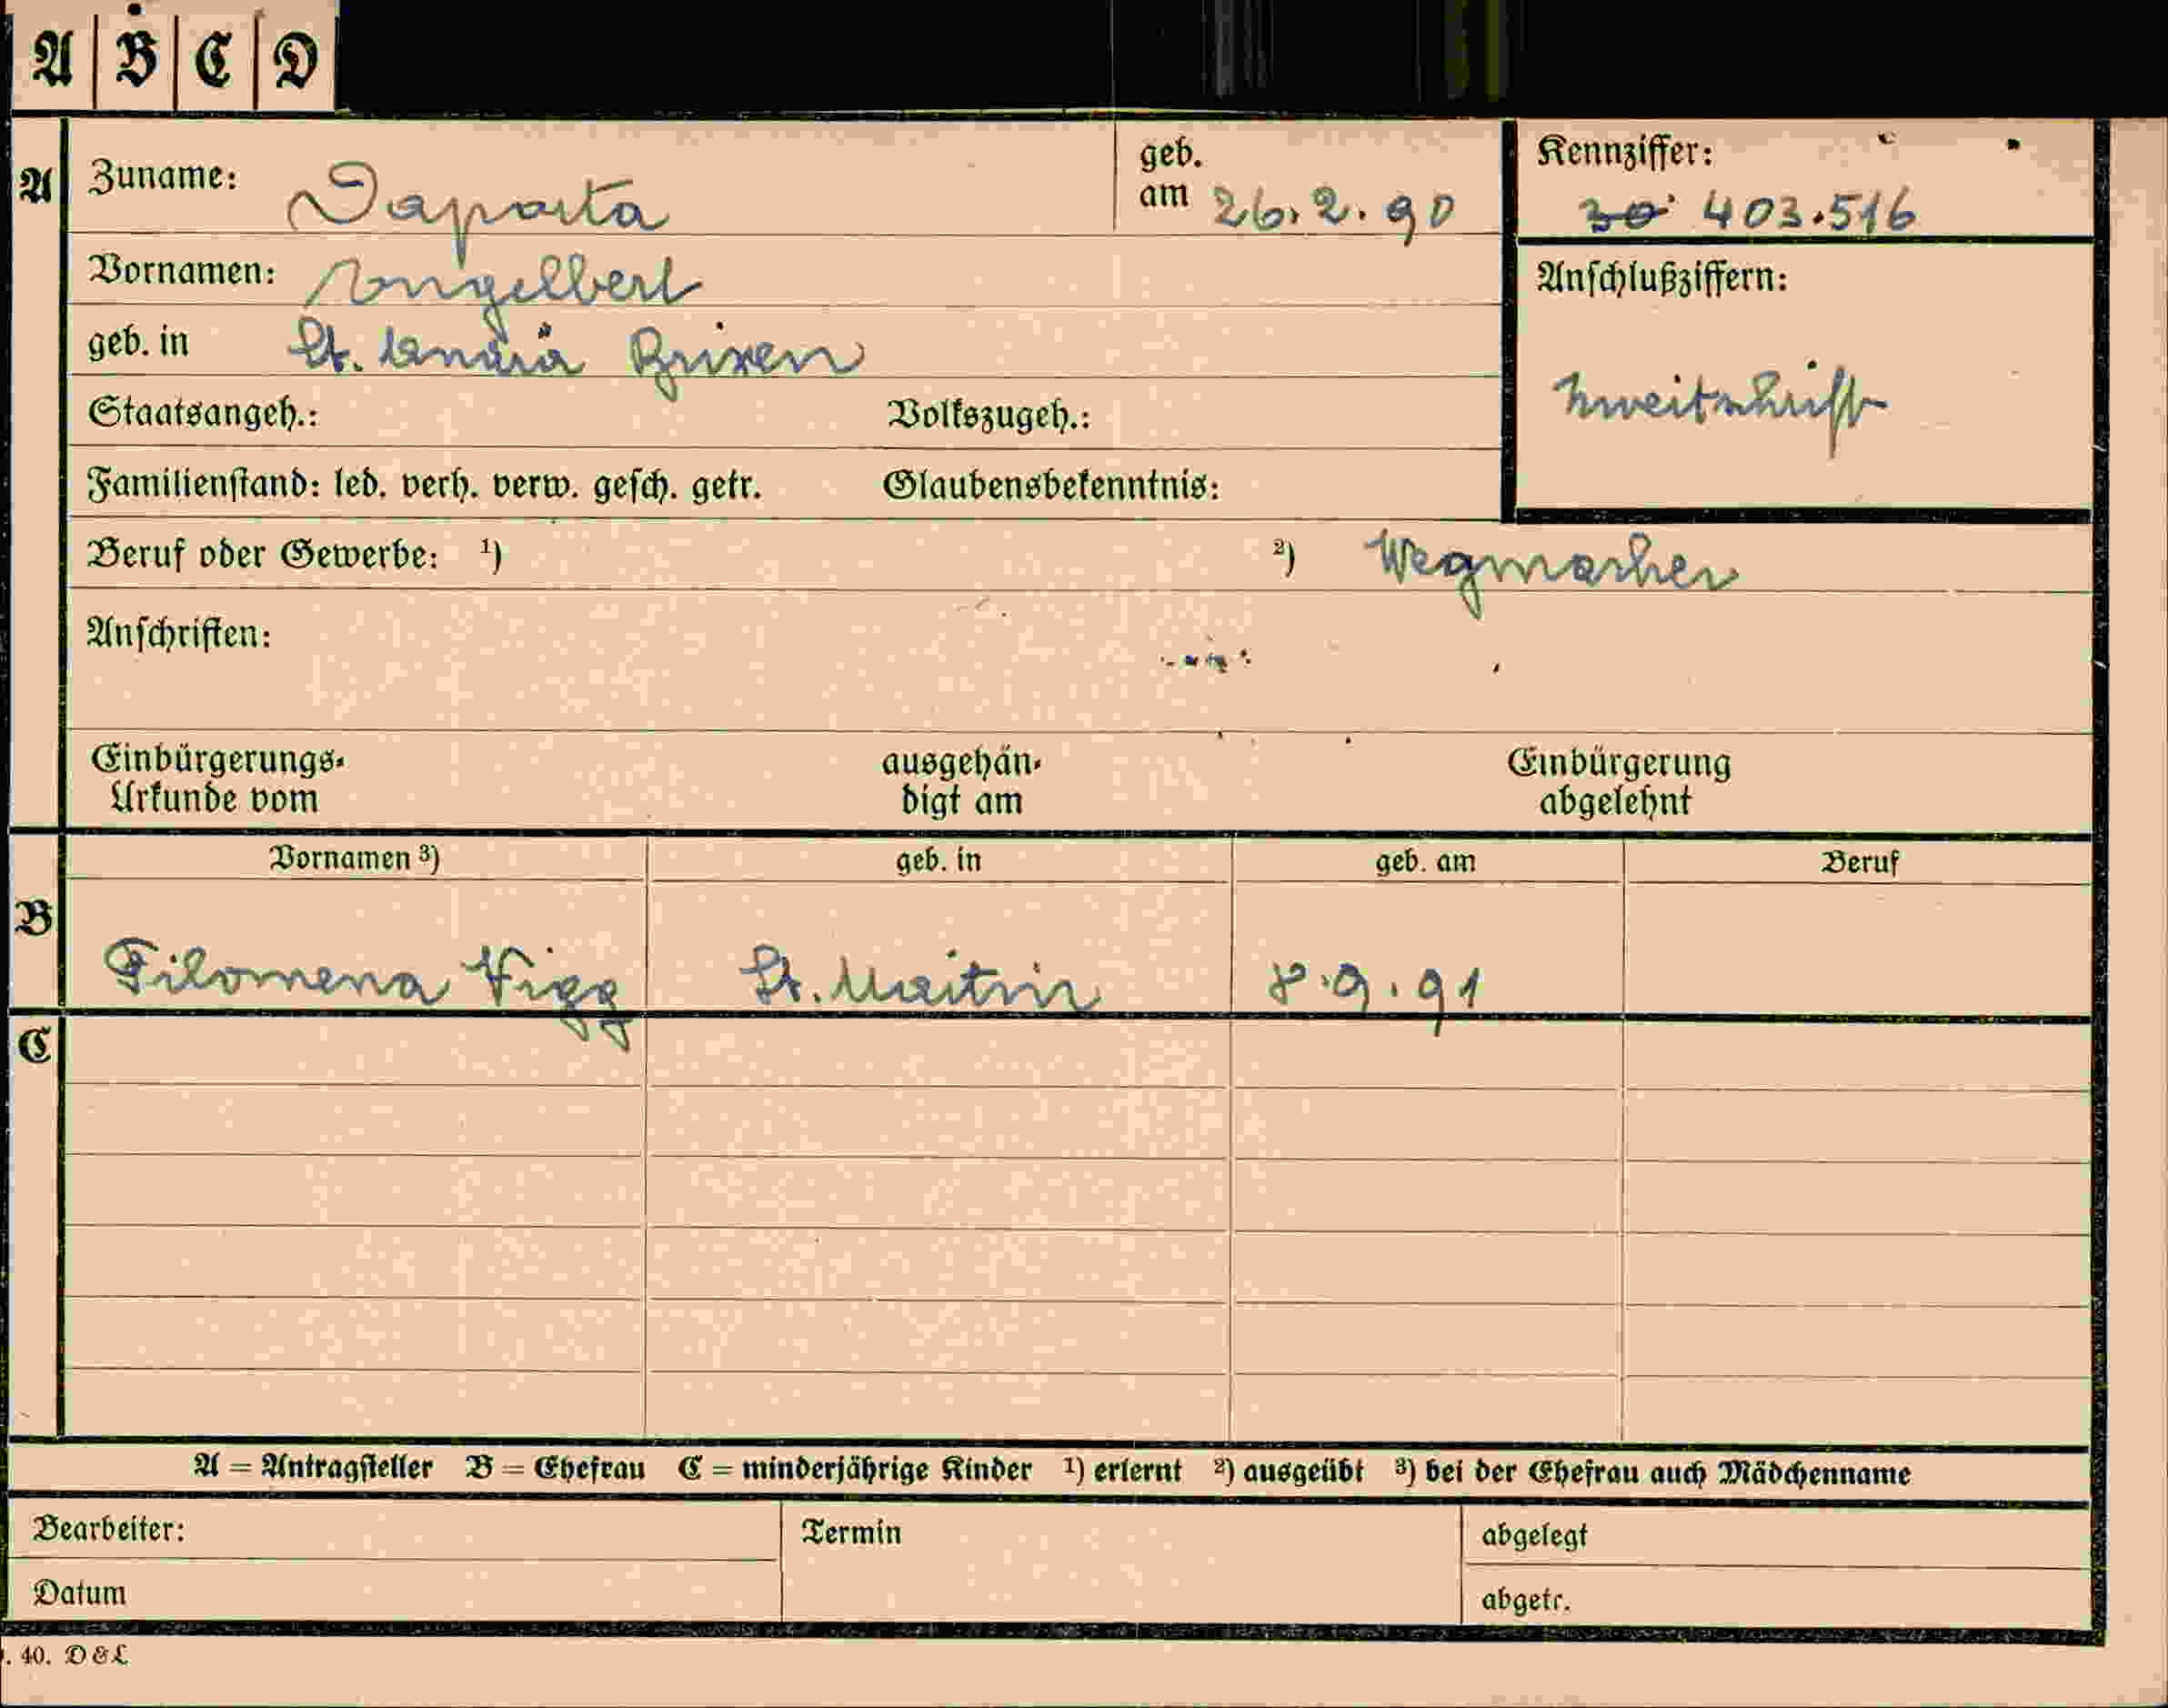 A B C D
A Zuname: Daporta geb. am 26.2.90 Kennziffer: 30 403.516
Vornamen: Engelbert Anschlußziffern:
geb. in St. Brixen
Zweitschrift
Staatsangeh.: Volkszugeh.:
Familienstand: led. verh. verw. gesch. getr. Glaubensbekenntnis:
Beruf oder Gewerbe: ¹) ²) Wegmacher
Anschriften:
Einbürgerungs- ausgehän- Einbürgerung
Urkunde vom digt am abgelehnt
Vornamen ³) geb. in geb. am Beruf
B Filomena St. 8.9.91
C
A = Antragsteller B = Ehefrau C = minderjährige Kinder ¹) erlernt ²) ausgeübt ³) bei der Ehefrau auch Mädchenname
Bearbeiter: Termin abgelegt
Datum abgetr.
. 40. D & L